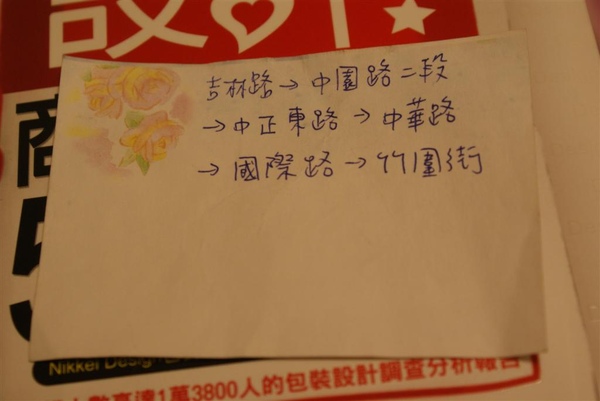 設計
商
吉林路→中園路二段
→中正東路→中華路
→國際路→竹圍街
Nikkei Design
數高達1萬3800人的包裝設計調查分析報告